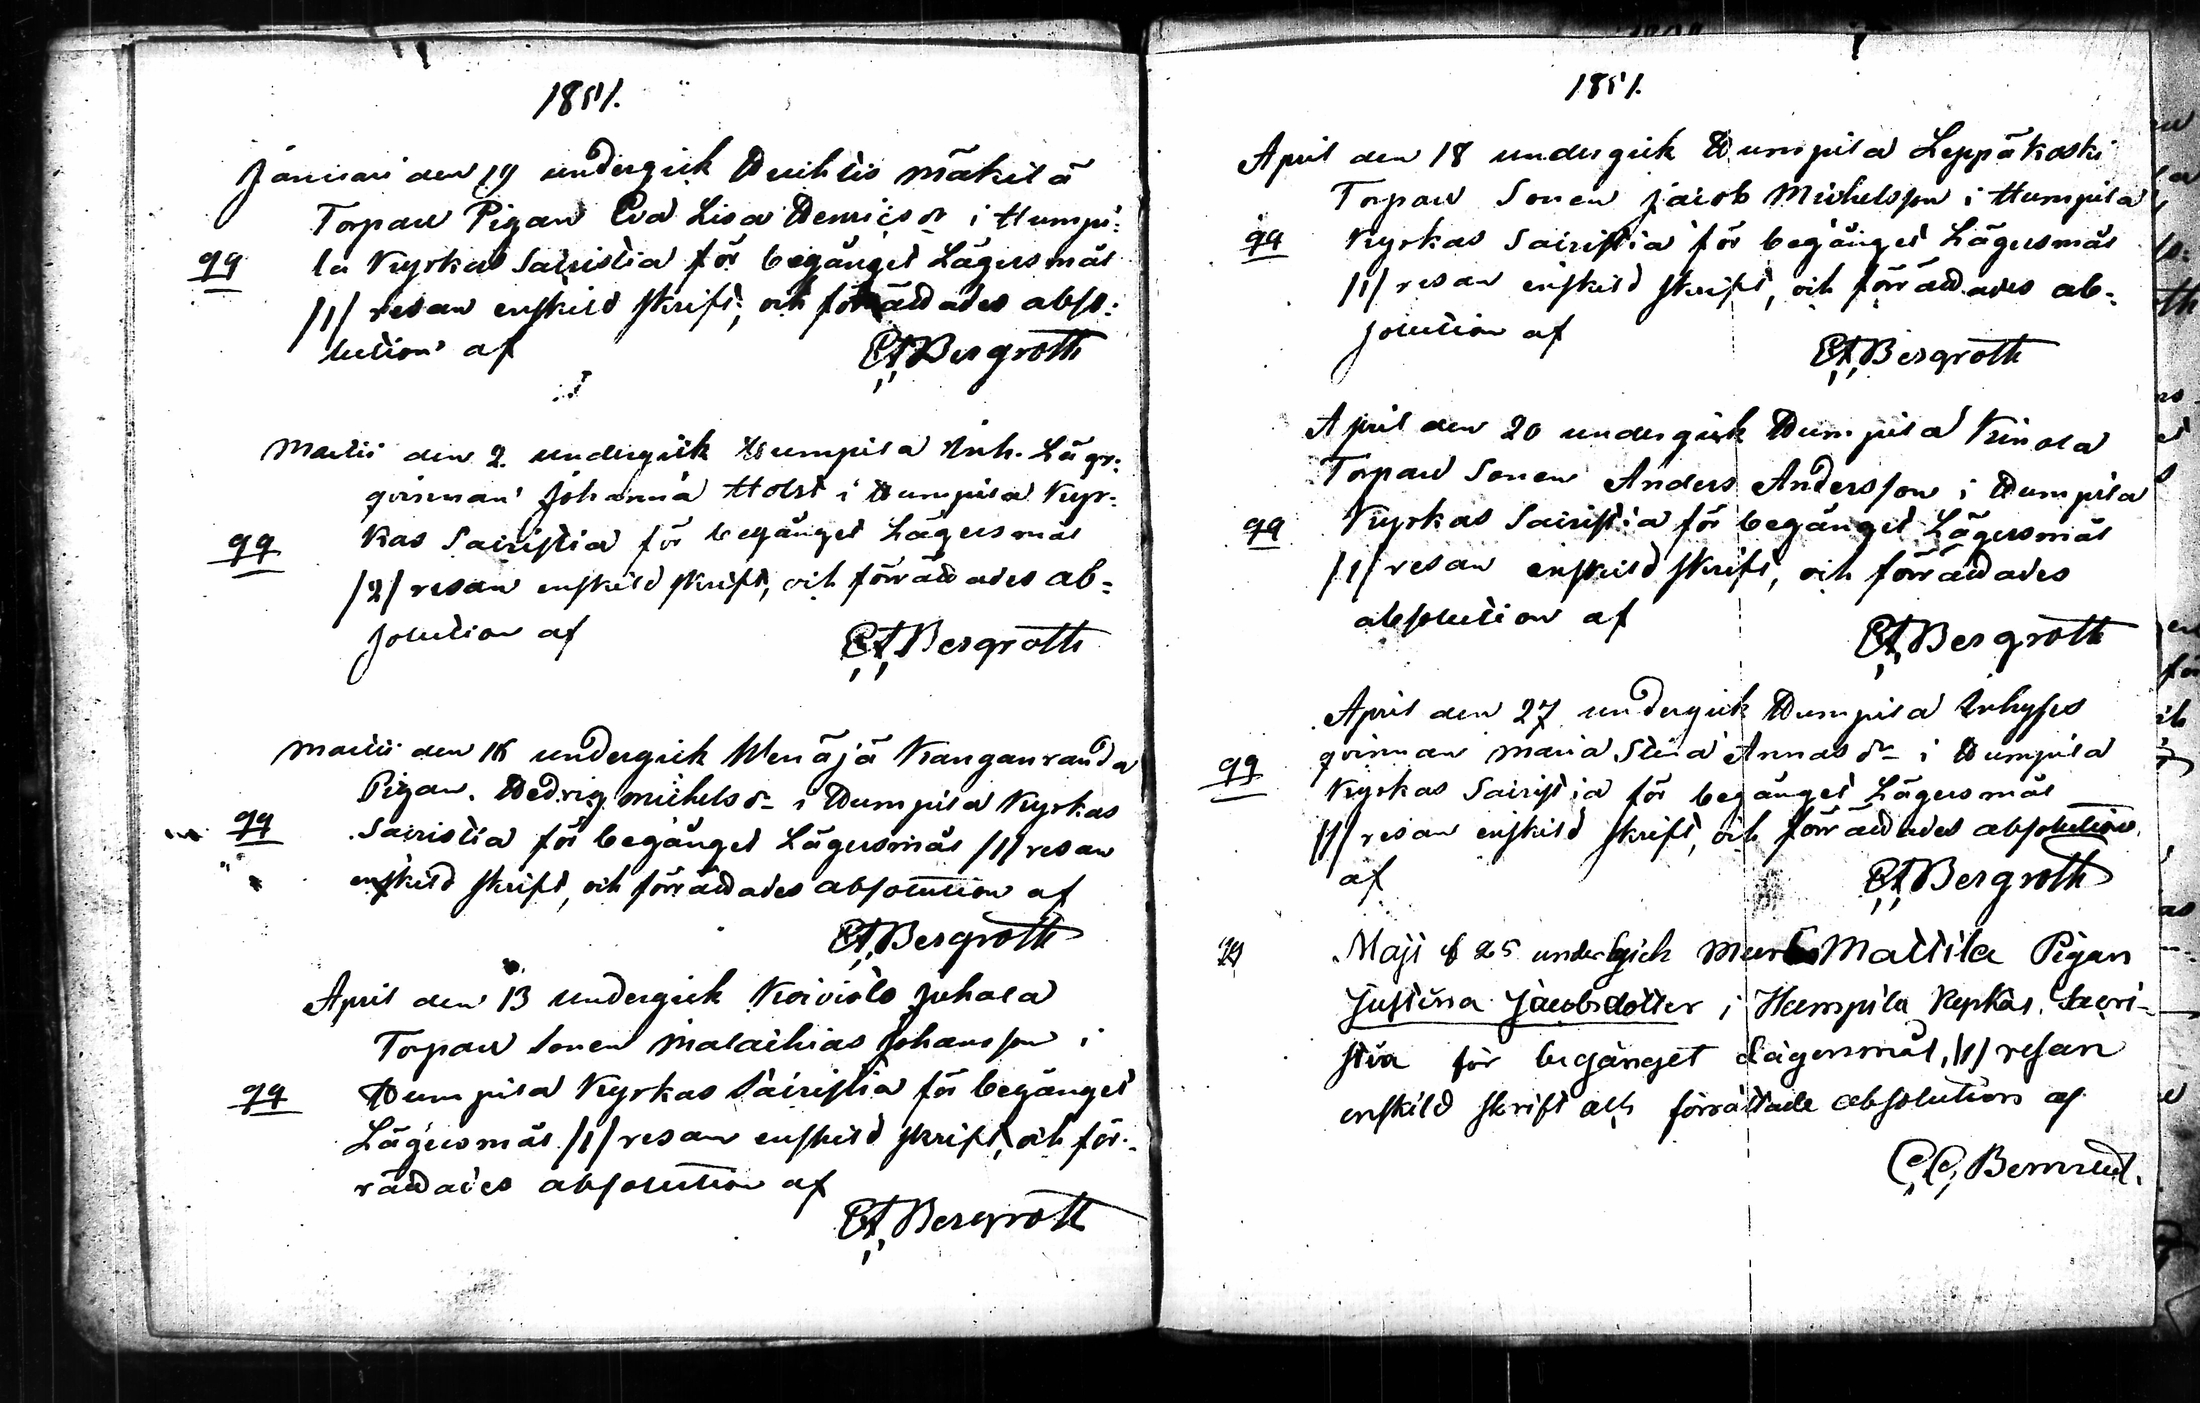 1851.
Januari den 19 undergick Huhtis Mäkilä
Torpare Pigan Eva Lisa Henricsdr i Humpi-
qq la Kyrkas Sacristia för begånget Lägersmål
/1/ resan enskild skrift, och förrättades abso-
lution af EABergroth
Martii den 2. undergick Humpila Inh. Lägr.
qvinnan Johanna Holst i Humpila Kyr-
qq kas Sacristia för begånget Lägersmål
/2/ resan enskild skrift, och förrättades ab-
solution af EABergroth
Martii den 16 undergick Wenäjä Kanganranda
Pigan Hedvig Michelsdr i Humpila Kyrkas
qq Sacristia för begånget Lägersmål /1/ resan
enskild skrift, och förrättades absolution af
EABergroth
April den 13 undergick Koivisto Juhala
Torpare Sonen Malachias Johansson i
qq Humpila Kyrkas Sacristia för begånget
Lägersmål /1/ resan enskild skrift, och för-
rättades absolution af
EABergroth
1851.
April den 18 undergick Humpila Leppäkoski
Torpare Sonen Jacob Michelsson i Humpila
qq Kyrkas Sacristia för begånget Lägersmål
/1/ resan enskild skrift, och förrättades ab-
solution af
EABergroth
April den 20 undergick Humpila
Torpare Sonen Anders Andersson i Humpila
qq Kyrkas Sacristia för begånget Lägersmål
/1/ resan enskild skrift, och förrättades
absolution af
EABergroth
April den 27 undergick Humpila Inhyses
qvinnan Maria Stina Annasdr i Humpila
qq Kyrkas Sacristia för begånget Lägersmål
/1/ resan enskild skrift, och förrättades absolution
af EABergroth
Maji d 25 undergick Mattila Pigan
Justina Jacobsdotter i Humpila Kyrkas Sacri-
stia för begånget Lägersmål, /1/ resan
enskild skrift och förrättade absolution af